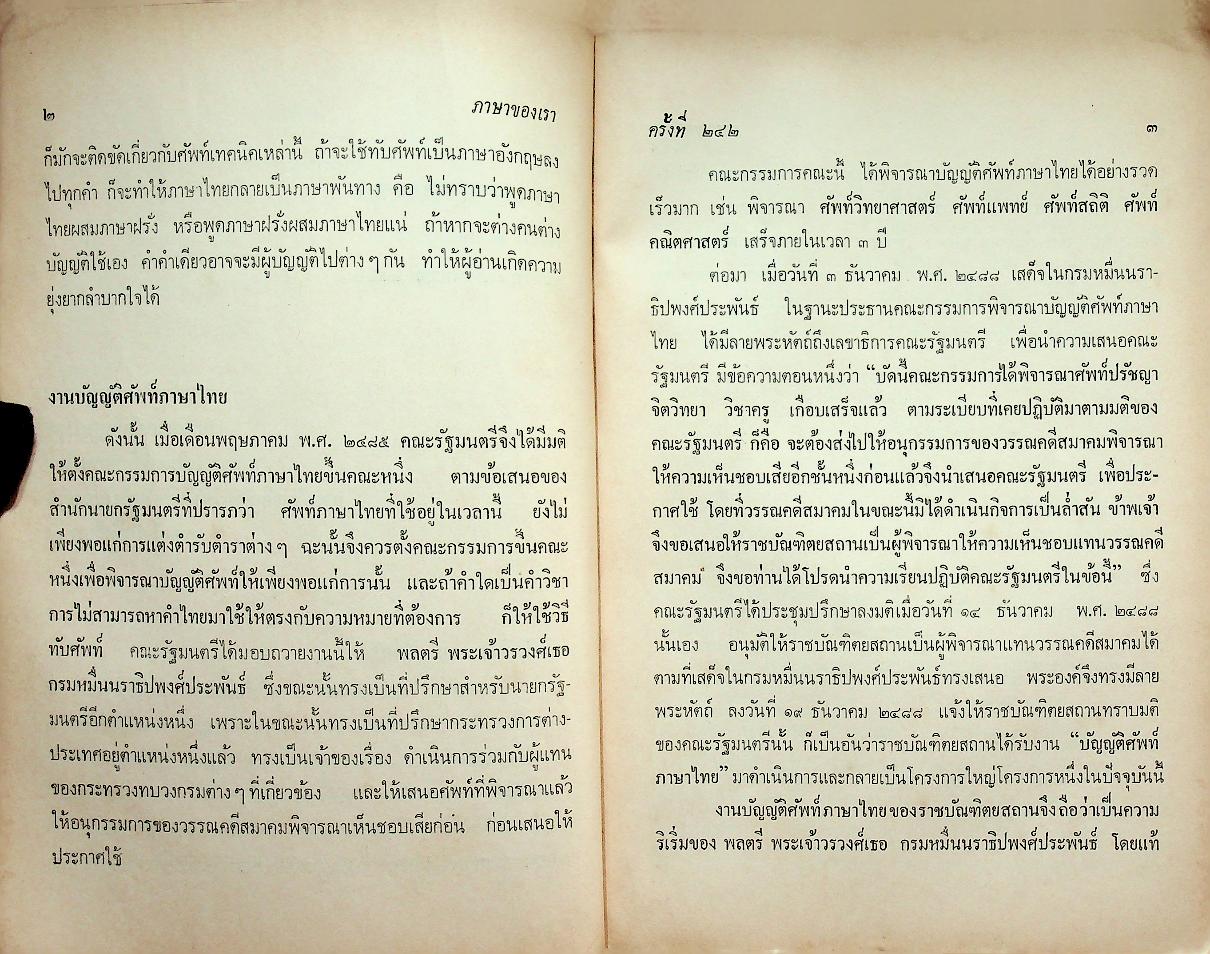 ๒
ภาษาของเรา
ก็มักจะติดขัดเกี่ยวกับศัพท์เทคนิคเหล่านี้ ถ้าจะใช้ทับศัพท์เป็นภาษาอังกฤษลง
ไปทุกคำ ก็จะทำให้ภาษาไทยกลายเป็นภาษาพันทาง คือ ไม่ทราบว่าพูดภาษา
ไทยผสมภาษาฝรั่ง หรือพูดภาษาฝรั่งผสมภาษาไทยแน่ ถ้าหากจะต่างคนต่าง
บัญญัติใช้เอง คำคำเดียวอาจจะมีผู้บัญญัติไปต่าง ๆ กัน ทำให้ผู้อ่านเกิดความ
ยุ่งยากลำบากใจได้
งานบัญญัติศัพท์ภาษาไทย
ดังนั้น เมื่อเดือนพฤษภาคม พ.ศ. ๒๔๘๕ คณะรัฐมนตรีจึงได้มีมติ
ให้ตั้งคณะกรรมการบัญญัติศัพท์ภาษาไทยขึ้นคณะหนึ่ง ตามข้อเสนอของ
สำนักนายกรัฐมนตรีที่ปรารภว่า ศัพท์ภาษาไทยที่ใช้อยู่ในเวลานี้ ยังไม่
เพียงพอแก่การแต่งตำรับตำราต่าง ๆ ฉะนั้นจึงควรตั้งคณะกรรมการขึ้นคณะ
หนึ่งเพื่อพิจารณาบัญญัติศัพท์ให้เพียงพอแก่การนั้น และถ้าคำใดเป็นคำวิชา
การไม่สามารถหาคำไทยมาใช้ให้ตรงกับความหมายที่ต้องการ ก็ให้ใช้วิธี
ทับศัพท์ คณะรัฐมนตรีได้มอบถวายงานนี้ให้ พลตรี พระเจ้าวรวงศ์เธอ
กรมหมื่นนราธิปพงศ์ประพันธ์ ซึ่งขณะนั้นทรงเป็นที่ปรึกษาสำหรับนายกรัฐ-
มนตรีอีกตำแหน่งหนึ่ง เพราะในขณะนั้นทรงเป็นที่ปรึกษากระทรวงการต่าง-
ประเทศอยู่ตำแหน่งหนึ่งแล้ว ทรงเป็นเจ้าของเรื่อง ดำเนินการร่วมกับผู้แทน
ของกระทรวงทบวงกรมต่าง ๆ ที่เกี่ยวข้อง และให้เสนอศัพท์ที่พิจารณาแล้ว
ให้อนุกรรมการของวรรณคดีสมาคมพิจารณาเห็นชอบเสียก่อน ก่อนเสนอให้
ประกาศใช้
ครั้งที่ ๒๔๒
๓
คณะกรรมการคณะนี้ ได้พิจารณาบัญญัติศัพท์ภาษาไทยได้อย่างรวด
เร็วมาก เช่น พิจารณา ศัพท์วิทยาศาสตร์ ศัพท์แพทย์ ศัพท์สถิติ ศัพท์
คณิตศาสตร์ เสร็จภายในเวลา ๓ ปี
ต่อมา เมื่อวันที่ ๓ ธันวาคม พ.ศ. ๒๔๘๘ เสด็จในกรมหมื่นนรา-
ธิปพงศ์ประพันธ์ ในฐานะประธานคณะกรรมการพิจารณาบัญญัติศัพท์ภาษา
ไทย ได้มีลายพระหัตถ์ถึงเลขาธิการคณะรัฐมนตรี เพื่อนำความเสนอคณะ
รัฐมนตรี มีข้อความตอนหนึ่งว่า “บัดนี้คณะกรรมการได้พิจารณาศัพท์ปรัชญา
จิตวิทยา วิชาครู เกือบเสร็จแล้ว ตามระเบียบที่เคยปฏิบัติมาตามมติของ
คณะรัฐมนตรี ก็คือ จะต้องส่งไปให้อนุกรรมการของวรรณคดีสมาคมพิจารณา
ให้ความเห็นชอบเสียอีกชั้นหนึ่งก่อนแล้วจึงนำเสนอคณะรัฐมนตรี เพื่อประ-
กาศใช้ โดยที่วรรณคดีสมาคมในขณะนี้มิได้ดำเนินกิจการเป็นล่ำสัน ข้าพเจ้า
จึงขอเสนอให้ราชบัณฑิตยสถานเป็นผู้พิจารณาให้ความเห็นชอบแทนวรรณคดี
สมาคม จึงขอท่านได้โปรดนำความเรียนปฏิบัติคณะรัฐมนตรีในข้อนี้” ซึ่ง
คณะรัฐมนตรีได้ประชุมปรึกษาลงมติเมื่อวันที่ ๑๔ ธันวาคม พ.ศ. ๒๔๘๘
นั้นเอง อนุมัติให้ราชบัณฑิตยสถานเป็นผู้พิจารณาแทนวรรณคดีสมาคมได้
ตามที่เสด็จในกรมหมื่นนราธิปพงศ์ประพันธ์ทรงเสนอ พระองค์จึงทรงมีลาย
พระหัตถ์ ลงวันที่ ๑๙ ธันวาคม ๒๔๘๘ แจ้งให้ราชบัณฑิตยสถานทราบมติ
ของคณะรัฐมนตรีนั้น ก็เป็นอันว่าราชบัณฑิตยสถานได้รับงาน “บัญญัติศัพท์
ภาษาไทย” มาดำเนินการและกลายเป็นโครงการใหญ่โครงการหนึ่งในปัจจุบันนี้
งานบัญญัติศัพท์ภาษาไทยของราชบัณฑิตยสถานจึงถือว่าเป็นความ
ริเริ่มของ พลตรี พระเจ้าวรวงศ์เธอ กรมหมื่นนราธิปพงศ์ประพันธ์ โดยแท้